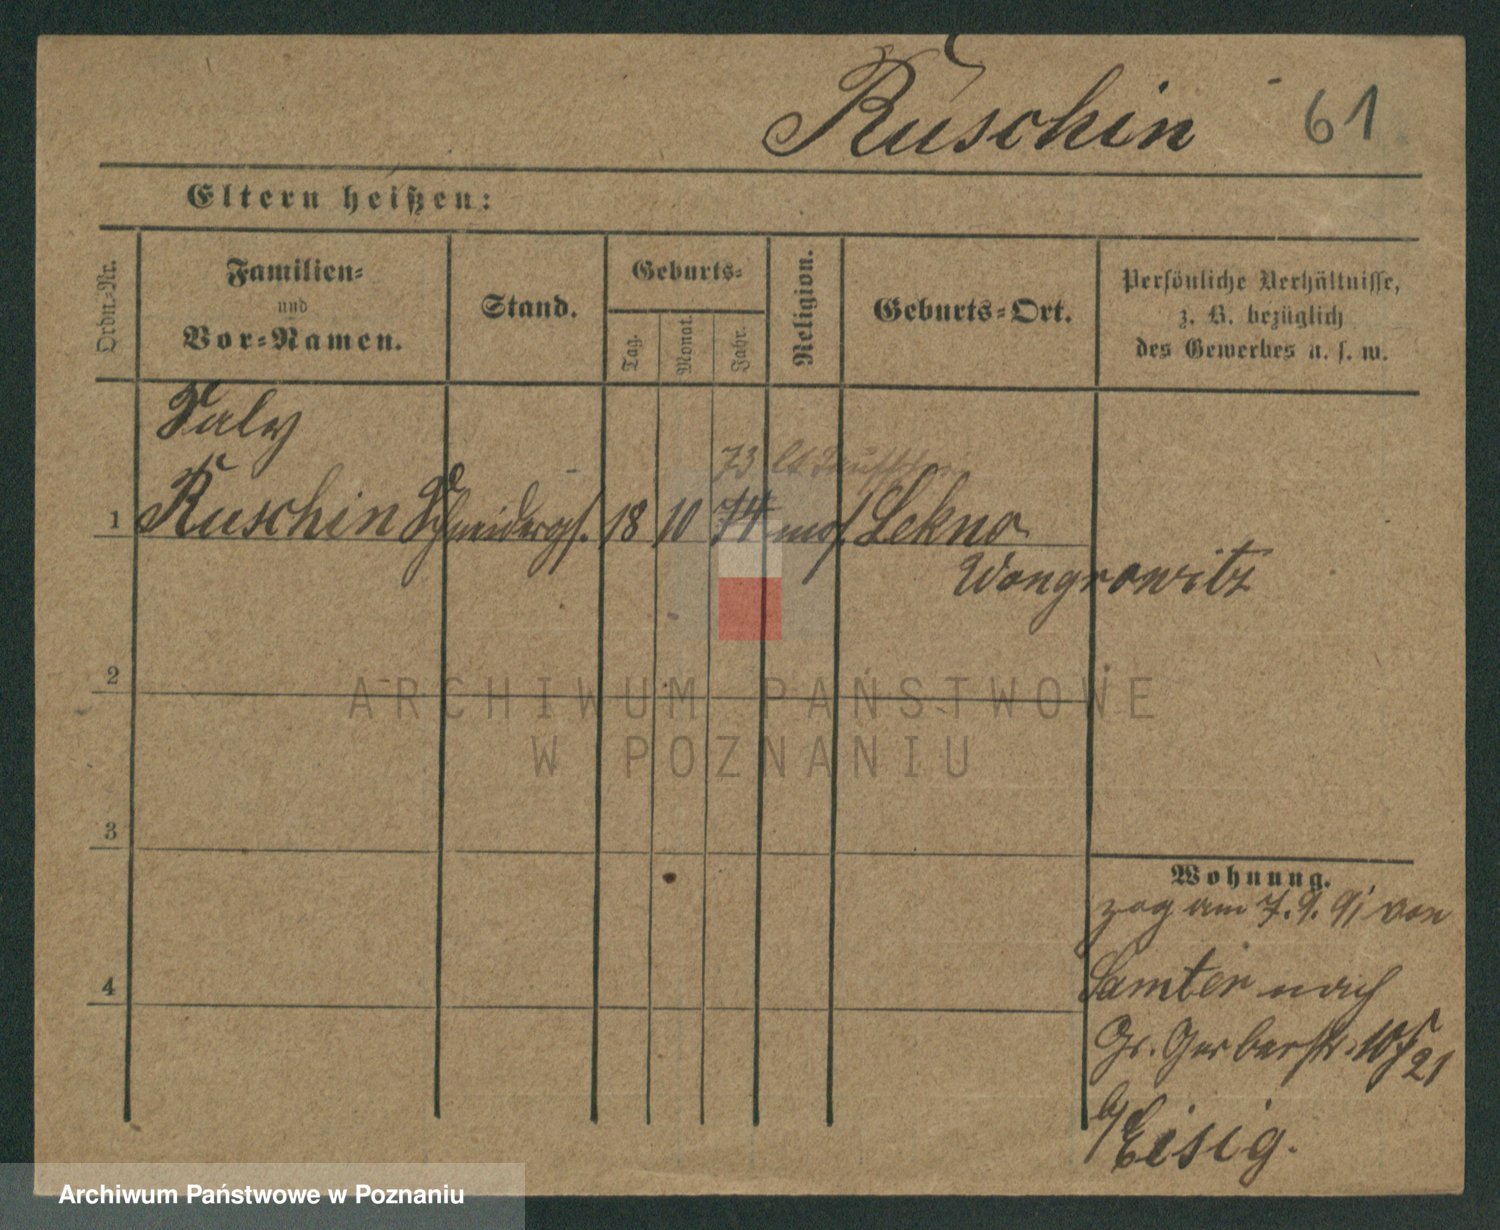 Ruschin 61
Eltern heißen:
Ordn.-Nr.
Familien-
und
Vor-Namen.
Stand.
Geburts-
Tag.
Monat.
Jahr.
Religion.
Geburts-Ort.
Persönliche Verhältnisse,
z. B. bezüglich
des Gewerbes u. s. w.
Saly
73 lt
1 Ruschin Schneiderges. 18 10 74 mos. Lekno
Wongrowitz
2
3
4
Wohnung.
zog am 7.9.91 von
Samter nach
Gr. Gerberstr. 10
21
b/ Eisig.
ARCHIWUM PAŃSTWOWE
W POZNANIU
Archiwum Państwowe w Poznaniu